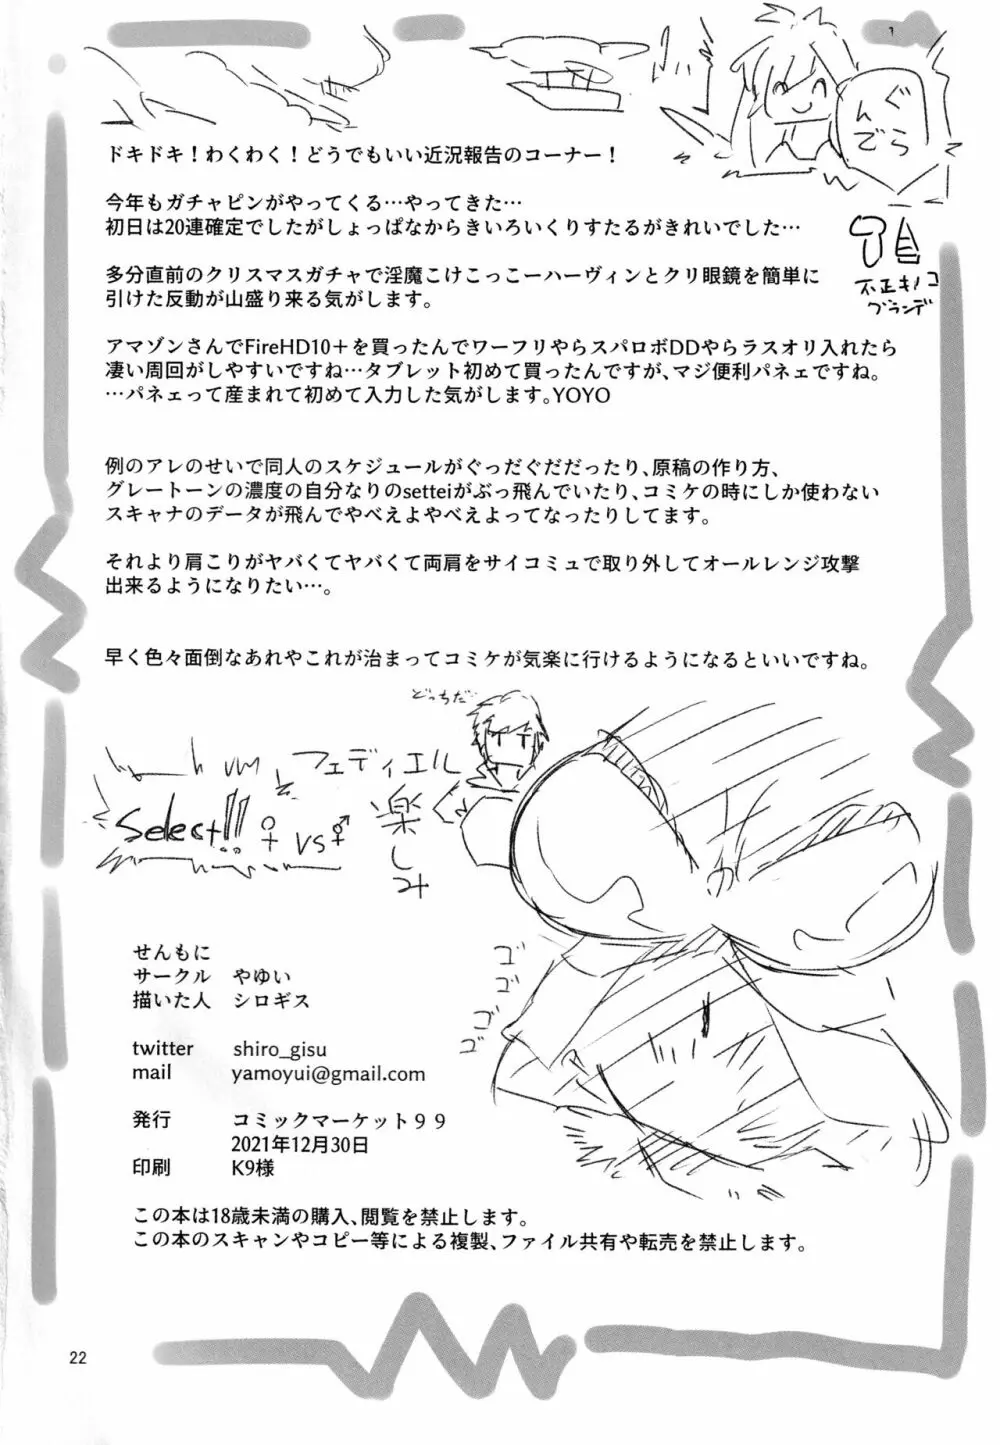 ぐらんで
ドキドキ！わくわく！どうでもいい近況報告のコーナー！
今年もガチャピンがやってくる…やってきた…
初日は20連確定でしたがしょっぱなからきいろいくりすたるがきれいでした…
不正キノコ
ブランデ
多分直前のクリスマスガチャで淫魔こけこっこーハーヴィンとクリ眼鏡を簡単に
引けた反動が山盛り来る気がします。
アマゾンさんでFireHD10＋を買ったんでワーフリやらスパロボDDやらラスオリ入れたら
凄い周回がしやすいですね…タブレット初めて買ったんですが、マジ便利パネェですね。
…パネェって産まれて初めて入力した気がします。YOYO
例のアレのせいで同人のスケジュールがぐっだぐだだったり、原稿の作り方、
グレートーンの濃度の自分なりのsetteiがぶっ飛んでいたり、コミケの時にしか使わない
スキャナのデータが飛んでやべえよやべえよってなったりしてます。
それより肩こりがヤバくてヤバくて両肩をサイコミュで取り外してオールレンジ攻撃
出来るようになりたい…。
早く色々面倒なあれやこれが治まってコミケが気楽に行けるようになるといいですね。
どっちだ…
フェディエル
楽しみ
Select!!
♀ vs ⚥
の
ゴゴゴゴ
せんもに
サークル　やゆい
描いた人　シロギス
twitter　shiro_gisu
mail　yamoyui@gmail.com
発行　コミックマーケット９９
2021年12月30日
印刷　K9様
この本は18歳未満の購入、閲覧を禁止します。
この本のスキャンやコピー等による複製、ファイル共有や転売を禁止します。
22